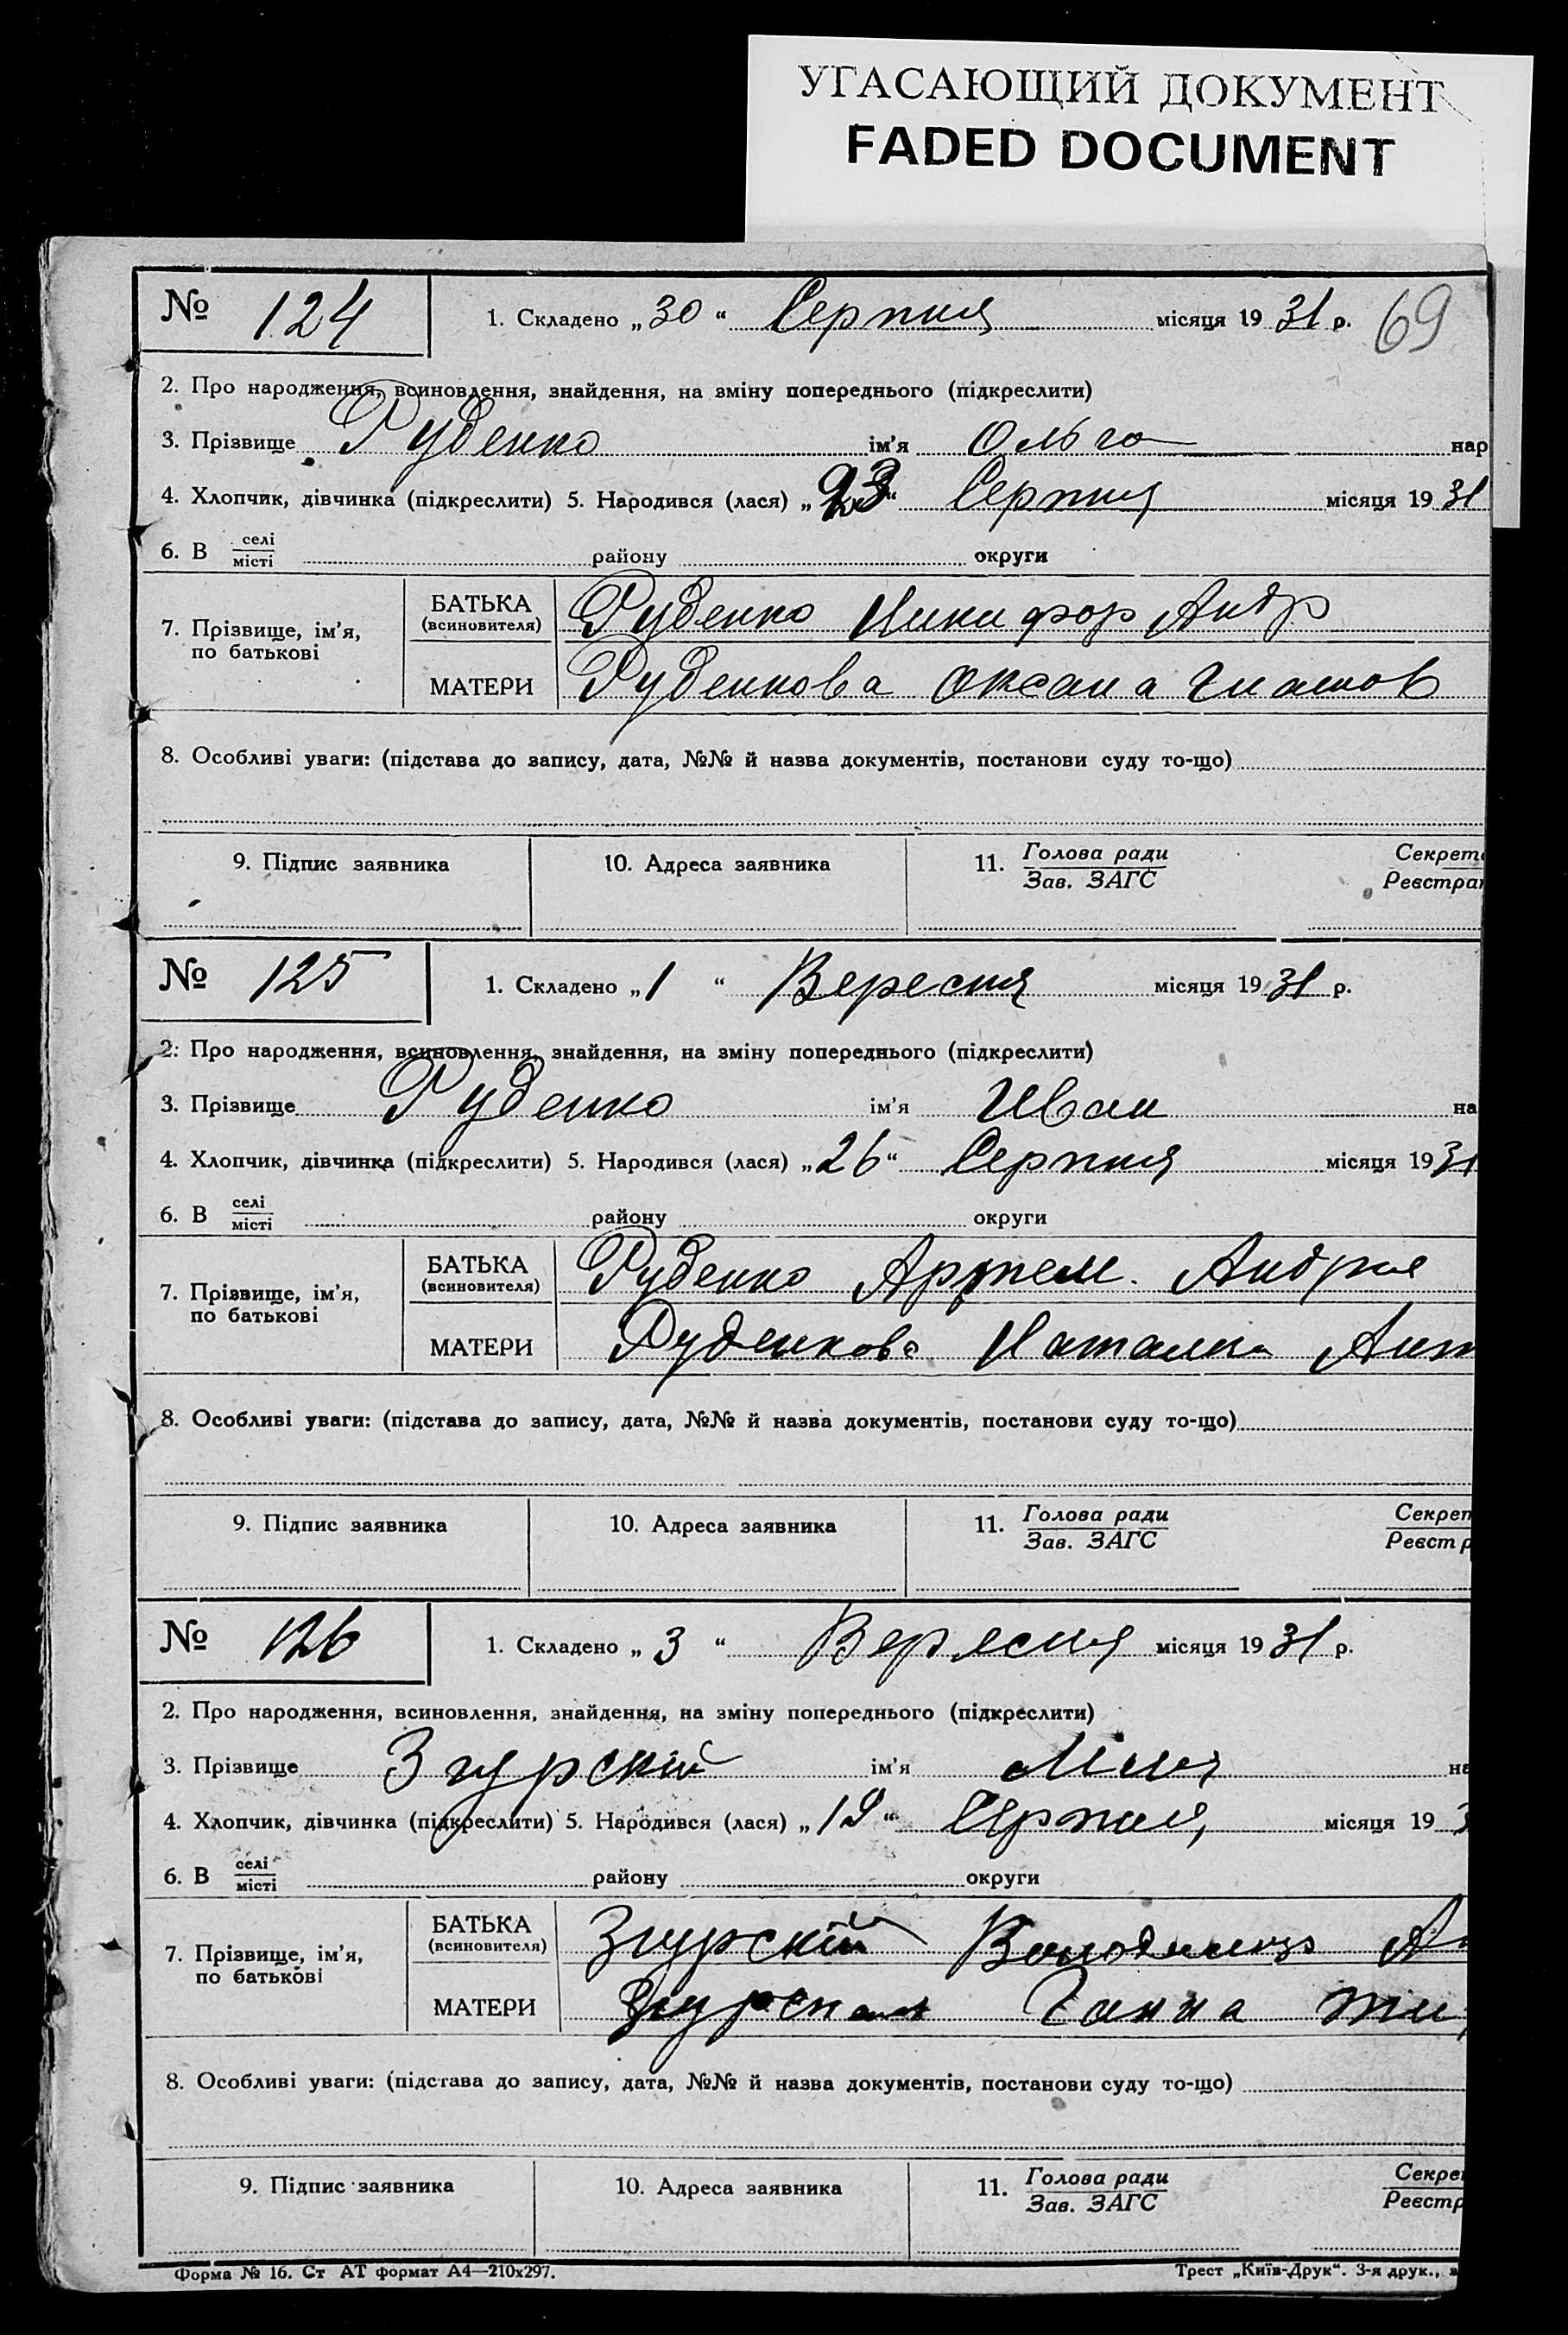 УГАСАЮЩИЙ ДОКУМЕНТ
FADED DOCUMENT
№ 124 1. Складено „30“ Серпня місяця 1931 р. 69
2. Про народження, всиновлення, знайдення, на зміну попереднього (підкреслити)
3. Прізвище Руденко ім’я Ольга нар
4. Хлопчик, дівчинка (підкреслити) 5. Народився (лася) „23“ Серпня місяця 1931
6. В селі/місті района округи
7. Прізвище, ім’я, по батькові БАТЬКА (всиновителя) Руденко Никифор Андр
МАТЕРИ Руденкова Оксана
8. Особливі уваги: (підстава до запису, дата, №№ й назва документів, постанови суду то-що)
9. Підпис заявника 10. Адреса заявника 11. Голова ради/Зав. ЗАГС Секрет Реєстра
№ 125 1. Складено „1“ Вересня місяця 1931 р.
2. Про народження, всиновлення, знайдення, на зміну попереднього (підкреслити)
3. Прізвище Руденко ім’я Иван на
4. Хлопчик, дівчинка (підкреслити) 5. Народився (лася) „26“ Серпня місяця 1931
6. В селі/місті району округи
7. Прізвище, ім’я, по батькові БАТЬКА (всиновителя) Руденко Артем. Андрие
МАТЕРИ Руденкова Наталка Ант
8. Особливі уваги: (підстава до запису, дата, №№ й назва документів, постанови суду то-що)
9. Підпис заявника 10. Адреса заявника 11. Голова ради/Зав. ЗАГС Секрет Реєстр
№ 126 1. Складено „3“ Вересня місяця 1931 р.
2. Про народження, всиновлення, знайдення, на зміну попереднього (підкреслити)
3. Прізвище Згурский ім’я на
4. Хлопчик, дівчинка (підкреслити) 5. Народився (лася) „19“ Серпня місяця 193
6. В селі/місті району округи
7. Прізвище, ім’я, по батькові БАТЬКА (всиновителя) Згурскій Володимир Ан
МАТЕРИ Згурская Ганна ти
8. Особливі уваги: (підстава до запису, дата, №№ й назва документів, постанови суду то-що)
9. Підпис заявника 10. Адреса заявника 11. Голова ради/Зав. ЗАГС Секре Реєстр
Форма № 16. Ст АТ формат А4—210х297. Трест „Київ-Друк“. 3-я друк.,